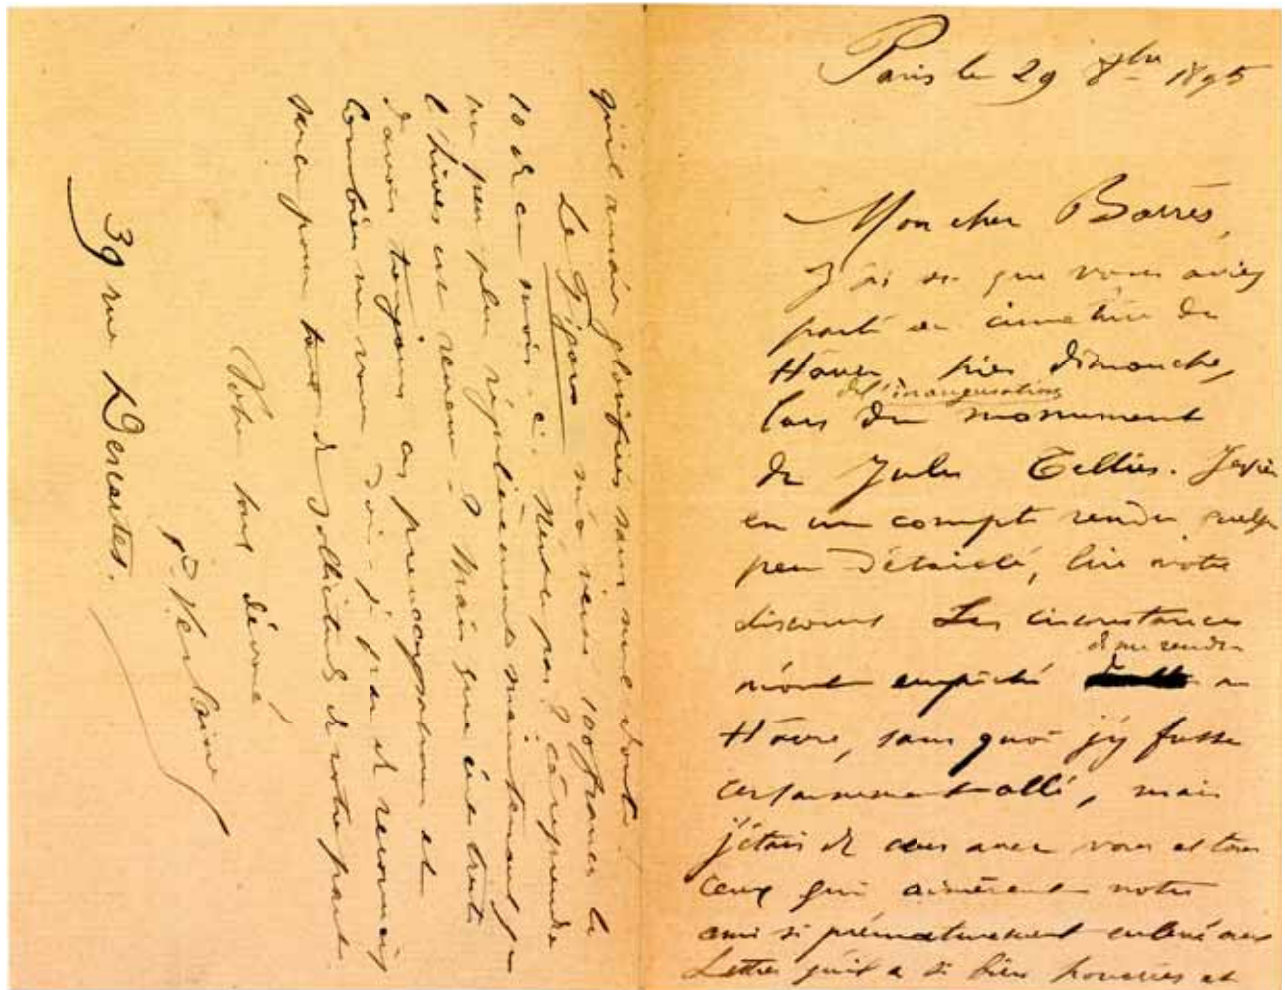 Paris le 29 8bre 1895
Mon cher Barrès,
J'ai su que vous aviez
parlé au cimetière du
Hâvre hier dimanche,
lors de l'inauguration du monument
de Jules Tellier. J'espère
en un compte rendu quelque
peu détaillé, lire votre
discours Les circonstances
m'ont empêché de me rendre au
Hâvre, sans quoi j'y fusse
certainement allé, mais
j'étais de cœur avec vous et tous
ceux qui aimèrent notre
ami si prématurément enlevé aux
Lettres qu'il a si bien honorées et
qu'il aurait glorifiées sans nul doute.
Le Figaro m'a versé 100 francs le
10 de ce mois-ci. N'est-ce pas? ça reprendra
un peu plus régulièrement maintenant que
l'hiver est revenu? Mais que c'est triste
d'avoir toujours ces préoccupations et
Combien ne vous dois-je pas de remercier
ments pour tant de sollicitude de votre part.
Votre tout dévoué
P. Verlaine
39 rue Descartes.